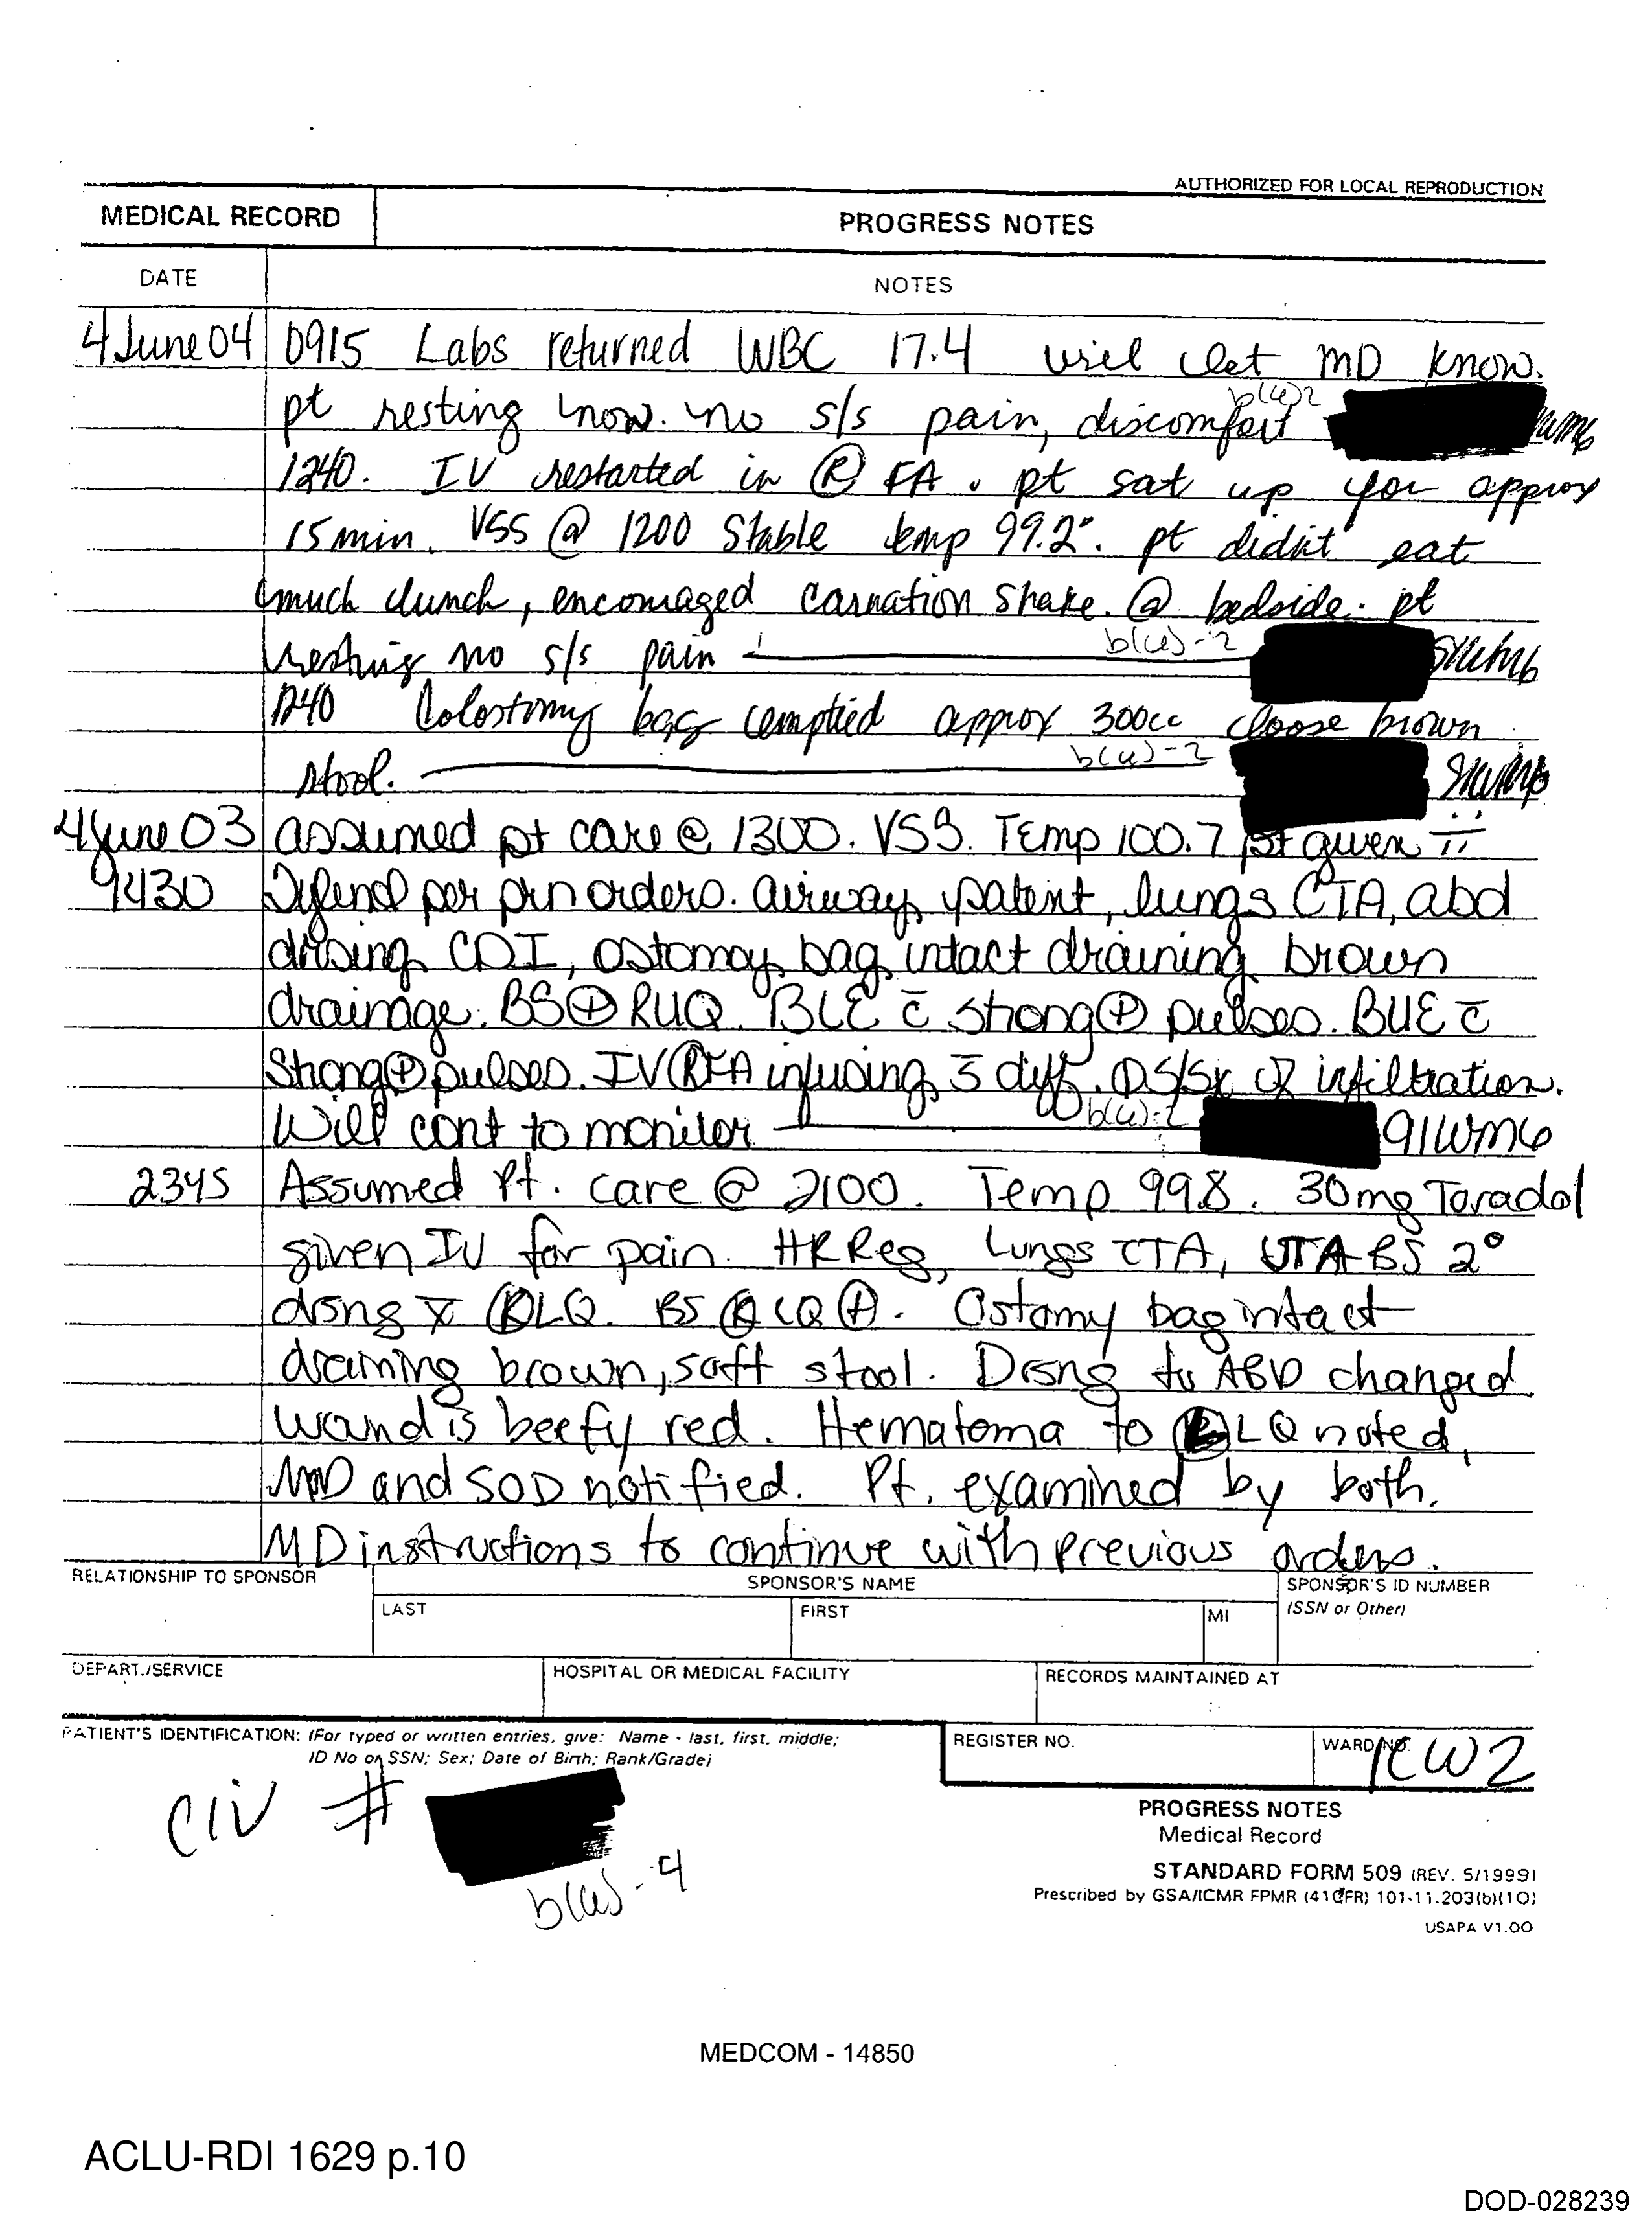 AUTHORIZED FOR LOCAL REPRODUCTION
MEDICAL RECORD PROGRESS NOTES
DATE NOTES
4 June 04 0915 Labs returned WBC 17.4 will let MD know.
pt resting now. no s/s pain, discomfort b(6)2
1240. IV restarted in Ⓡ FA. pt sat up for approx
15 min. VSS @ 1200 Stable temp 99.2°. pt didn't eat
much lunch, encouraged carnation shake. @ bedside. pt
resting no s/s pain b(6)-2
1240 Colostomy bag emptied approx 300cc loose brown
stool. b(6)-2
4 June 03 assumed pt care @ 1300. VSS. Temp 100.7 pt given ii
1430 per prn orders. airway patent, lungs CTA, abd
drssing CDI, ostomoy bag intact draining brown
drainage. BS⊕ RUQ. BLE c̄ strong⊕ pulses. BUE c̄
Strong⊕pulses. IV ⓇFA infusing s̄ diff. Ø S/Sx of infiltration.
Will cont to monitor b(6)-2 91WM6
2345 Assumed Pt. care @ 2100. Temp 99.8. 30mg Toradol
given IV for pain. HR Reg, Lungs CTA, UTA BS 2°
drsng x ⓇLQ. BS LQ ⊕. Ostomy bag intact
draining brown, soft stool. Drsng to ABD changed
wound is beefy red. Hematoma to LQ noted,
MOD and SOD notified. Pt. examined by both.
MD instructions to continue with previous orders.
RELATIONSHIP TO SPONSOR SPONSOR'S NAME SPONSOR'S ID NUMBER
LAST FIRST MI (SSN or Other)
DEPART./SERVICE HOSPITAL OR MEDICAL FACILITY RECORDS MAINTAINED AT
PATIENT'S IDENTIFICATION: (For typed or written entries, give: Name - last, first, middle;
ID No or SSN; Sex; Date of Birth; Rank/Grade)
REGISTER NO. WARD NO. ICW2
CIV #
b(6)-4
PROGRESS NOTES
Medical Record
STANDARD FORM 509 (REV. 5/1999)
Prescribed by GSA/ICMR FPMR (41CFR) 101-11.203(b)(10)
USAPA V1.00
MEDCOM - 14850
ACLU-RDI 1629 p.10
DOD-028239